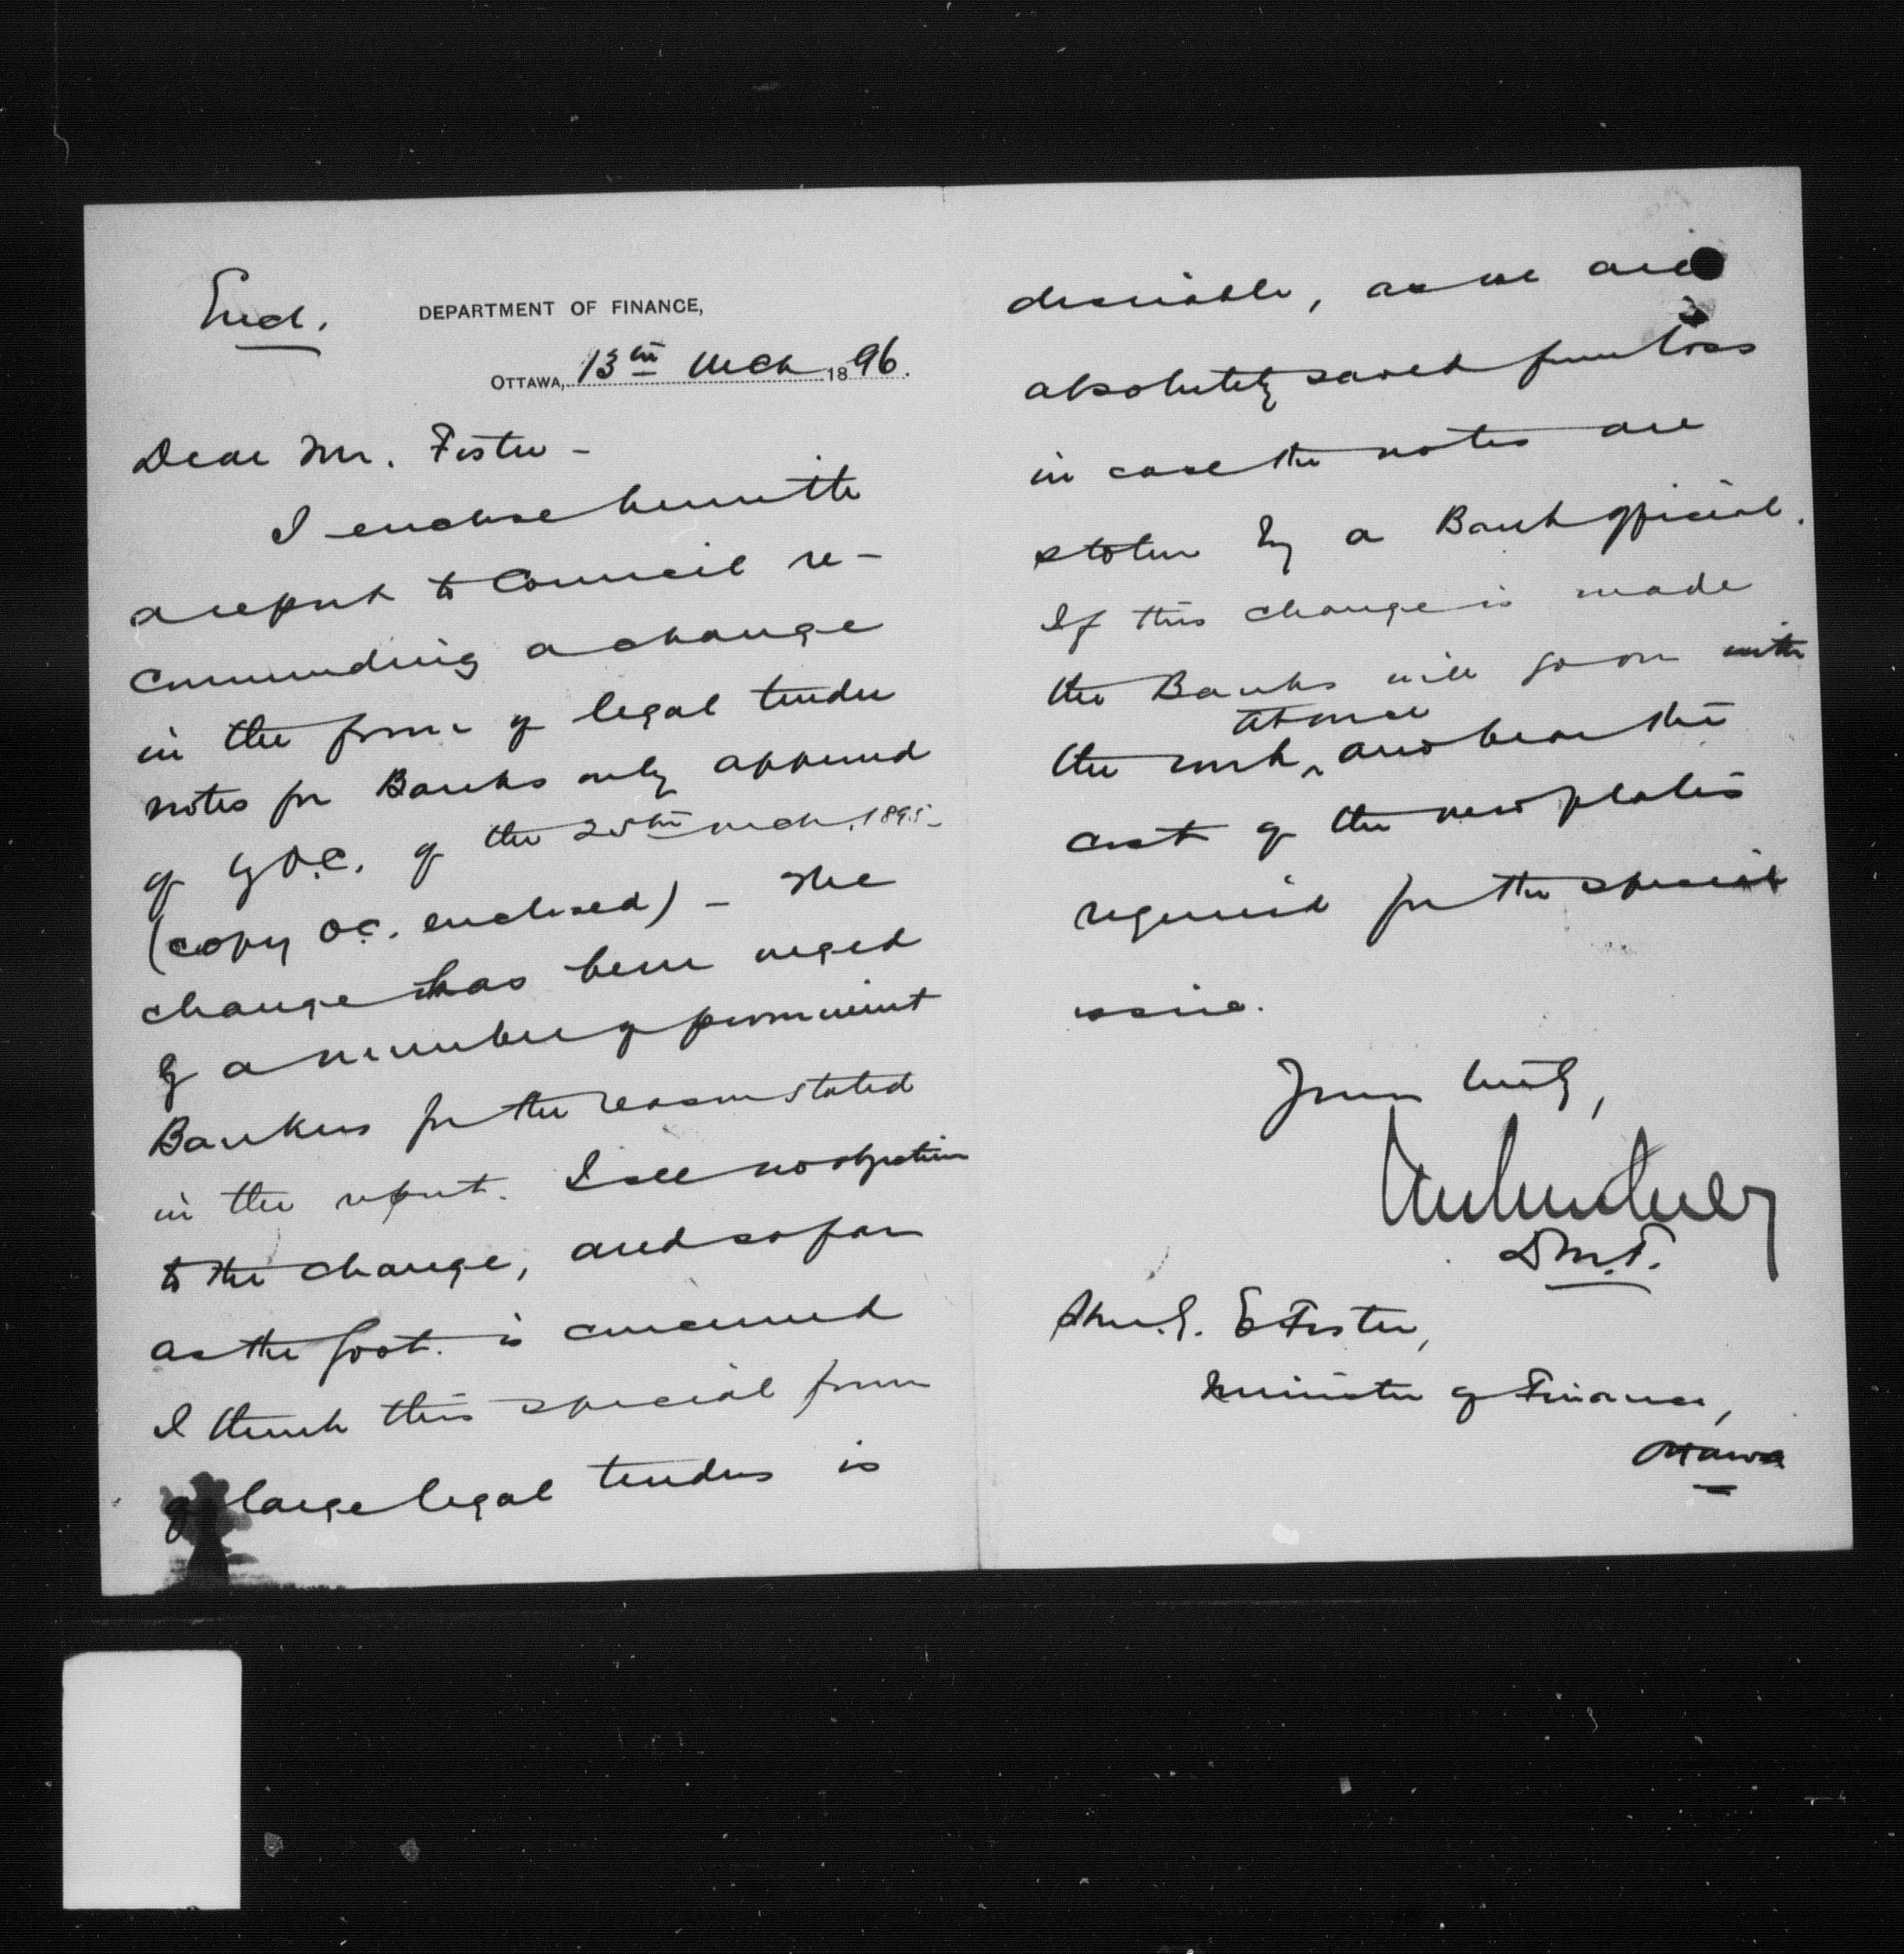 Encl.
DEPARTMENT OF FINANCE,
OTTAWA, 13th Mch 1896.
Dear Mr. Foster -
I enclose herewith
a report to Council re-
commending a change
in the form of legal tender
notes for Banks only approved
of by O.C. of the 25th Mch. 1895-
(copy O.C. enclosed) - The
change has been urged
by a number of prominent
Bankers for the reasons stated
in the report. I see no objection
to the change, and so far
as the Govt. is concerned
I think this special form
of large legal tenders is
desirable, as we are
absolutely saved from loss
in case the notes are
stolen by a Bank official.
If this change is made
the Banks will go on with
the work at once and bear the
cost of the new plates
required for the special
issue.
Yours truly,
D.M.F.
Hon. G. E. Foster,
Minister of Finance,
Ottawa